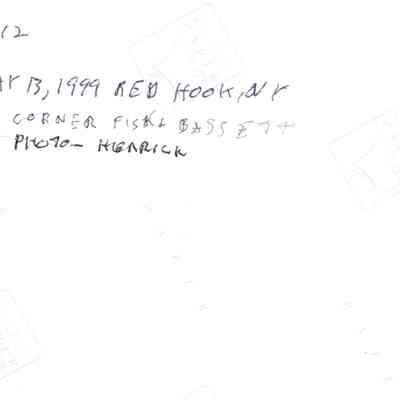 12
AY 13, 1999 RED HOOK, NY
CORNER FISK & BASSETT
PHOTO- HERRICK